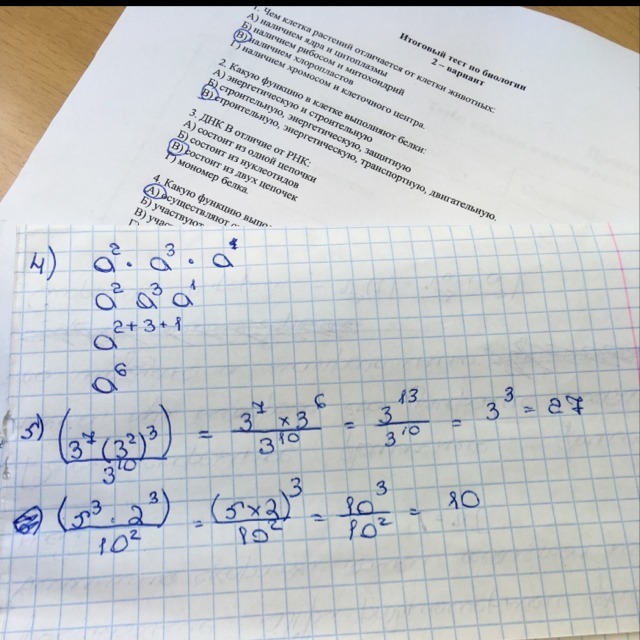 Итоговый тест по биологии
2 – вариант
1. Чем клетка растений отличается от клетки животных:
А) наличием ядра и цитоплазмы
Б) наличием рибосом и митохондрий
В) наличием хлоропластов
Г) наличием хромосом и клеточного центра.
2. Какую функцию в клетке выполняют белки:
А) энергетическую и строительную
Б) строительную, энергетическую, защитную
В) строительную, энергетическую, транспортную, двигательную.
3. ДНК В отличие от РНК:
А) состоит из одной цепочки
Б) состоит из нуклеотидов
В) состоит из двух цепочек
Г) мономер белка.
4. Какую функцию
А) осуществляют
Б) участвуют
В)
4) a² · a³ · a¹
a² a³ a¹
a²⁺³⁺¹
a⁶
5) (3⁷(3²)³)/3¹⁰ = (3⁷ × 3⁶)/3¹⁰ = 3¹³/3¹⁰ = 3³ = 27
(5³ · 2³)/10² = (5×2)³/10² = 10³/10² = 10